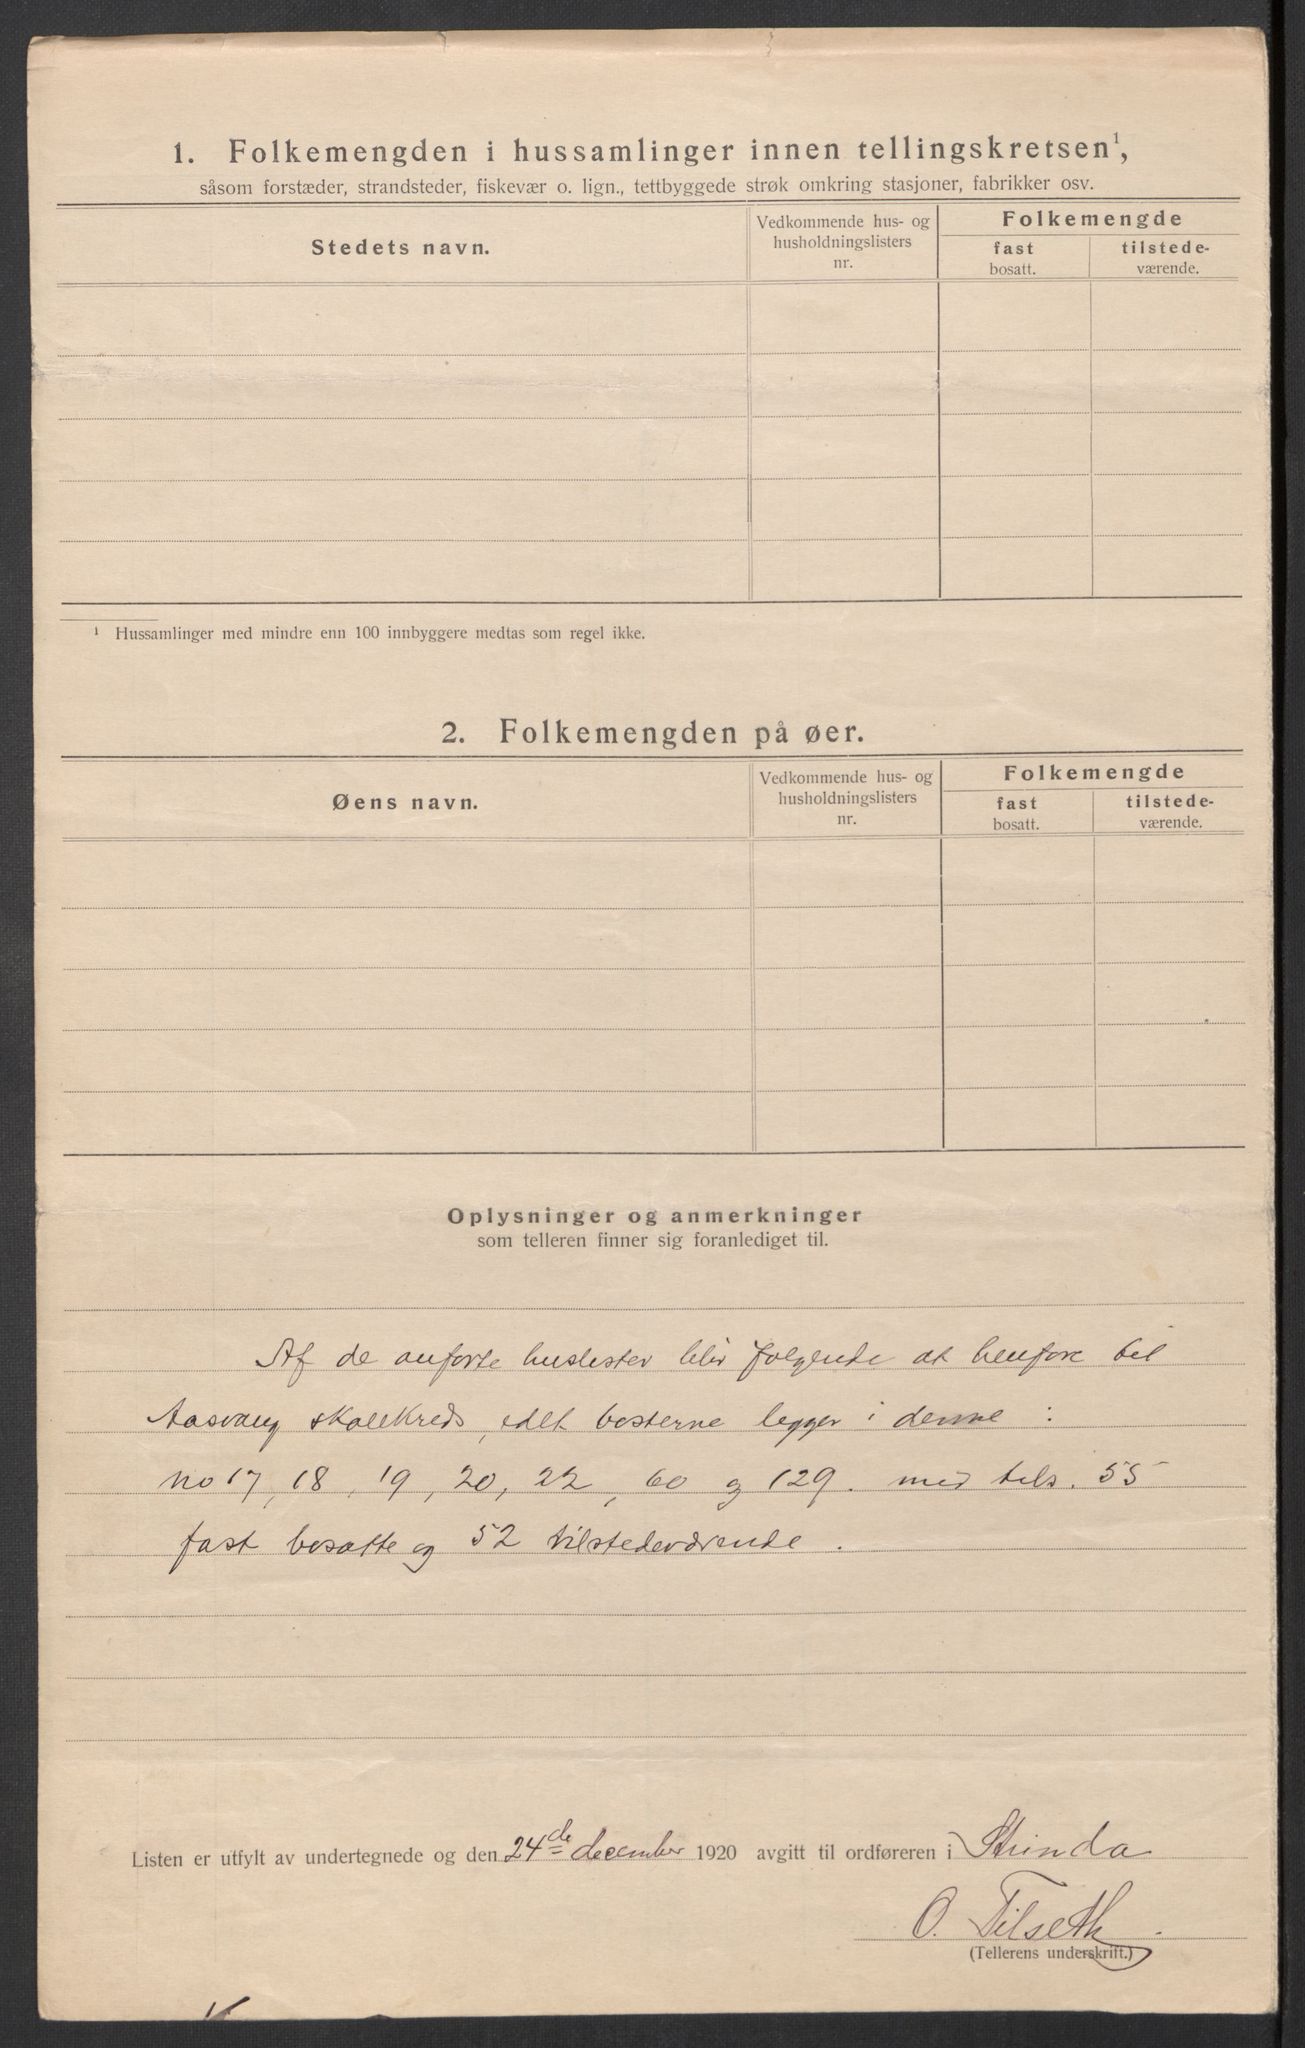 1. Folkemengden i hussamlinger innen tellingskretsen¹,
såsom forstæder, strandsteder, fiskevær o. lign., tettbyggede strøk omkring stasjoner, fabrikker osv.
Stedets navn.
Vedkommende hus- og
husholdningslisters
nr.
Folkemengde
fast
bosatt.
tilstede-
værende.
¹ Hussamlinger med mindre enn 100 innbyggere medtas som regel ikke.
2. Folkemengden på øer.
Øens navn.
Vedkommende hus- og
husholdningslisters
nr.
Folkemengde
fast
bosatt.
tilstede-
værende.
Oplysninger og anmerkninger
som telleren finner sig foranlediget til.
Af de anførte huslister blir følgende at henføre til
Aasvang skolekreds, idet bosterne ligger i denne :
no 17, 18, 19, 20, 22, 60 og 129. med tils. 55
fast bosatte og 52 tilstedeværende.
Listen er utfylt av undertegnede og den 24de december 1920 avgitt til ordføreren i Strinda
O. Tilseth
(Tellerens underskrift.)